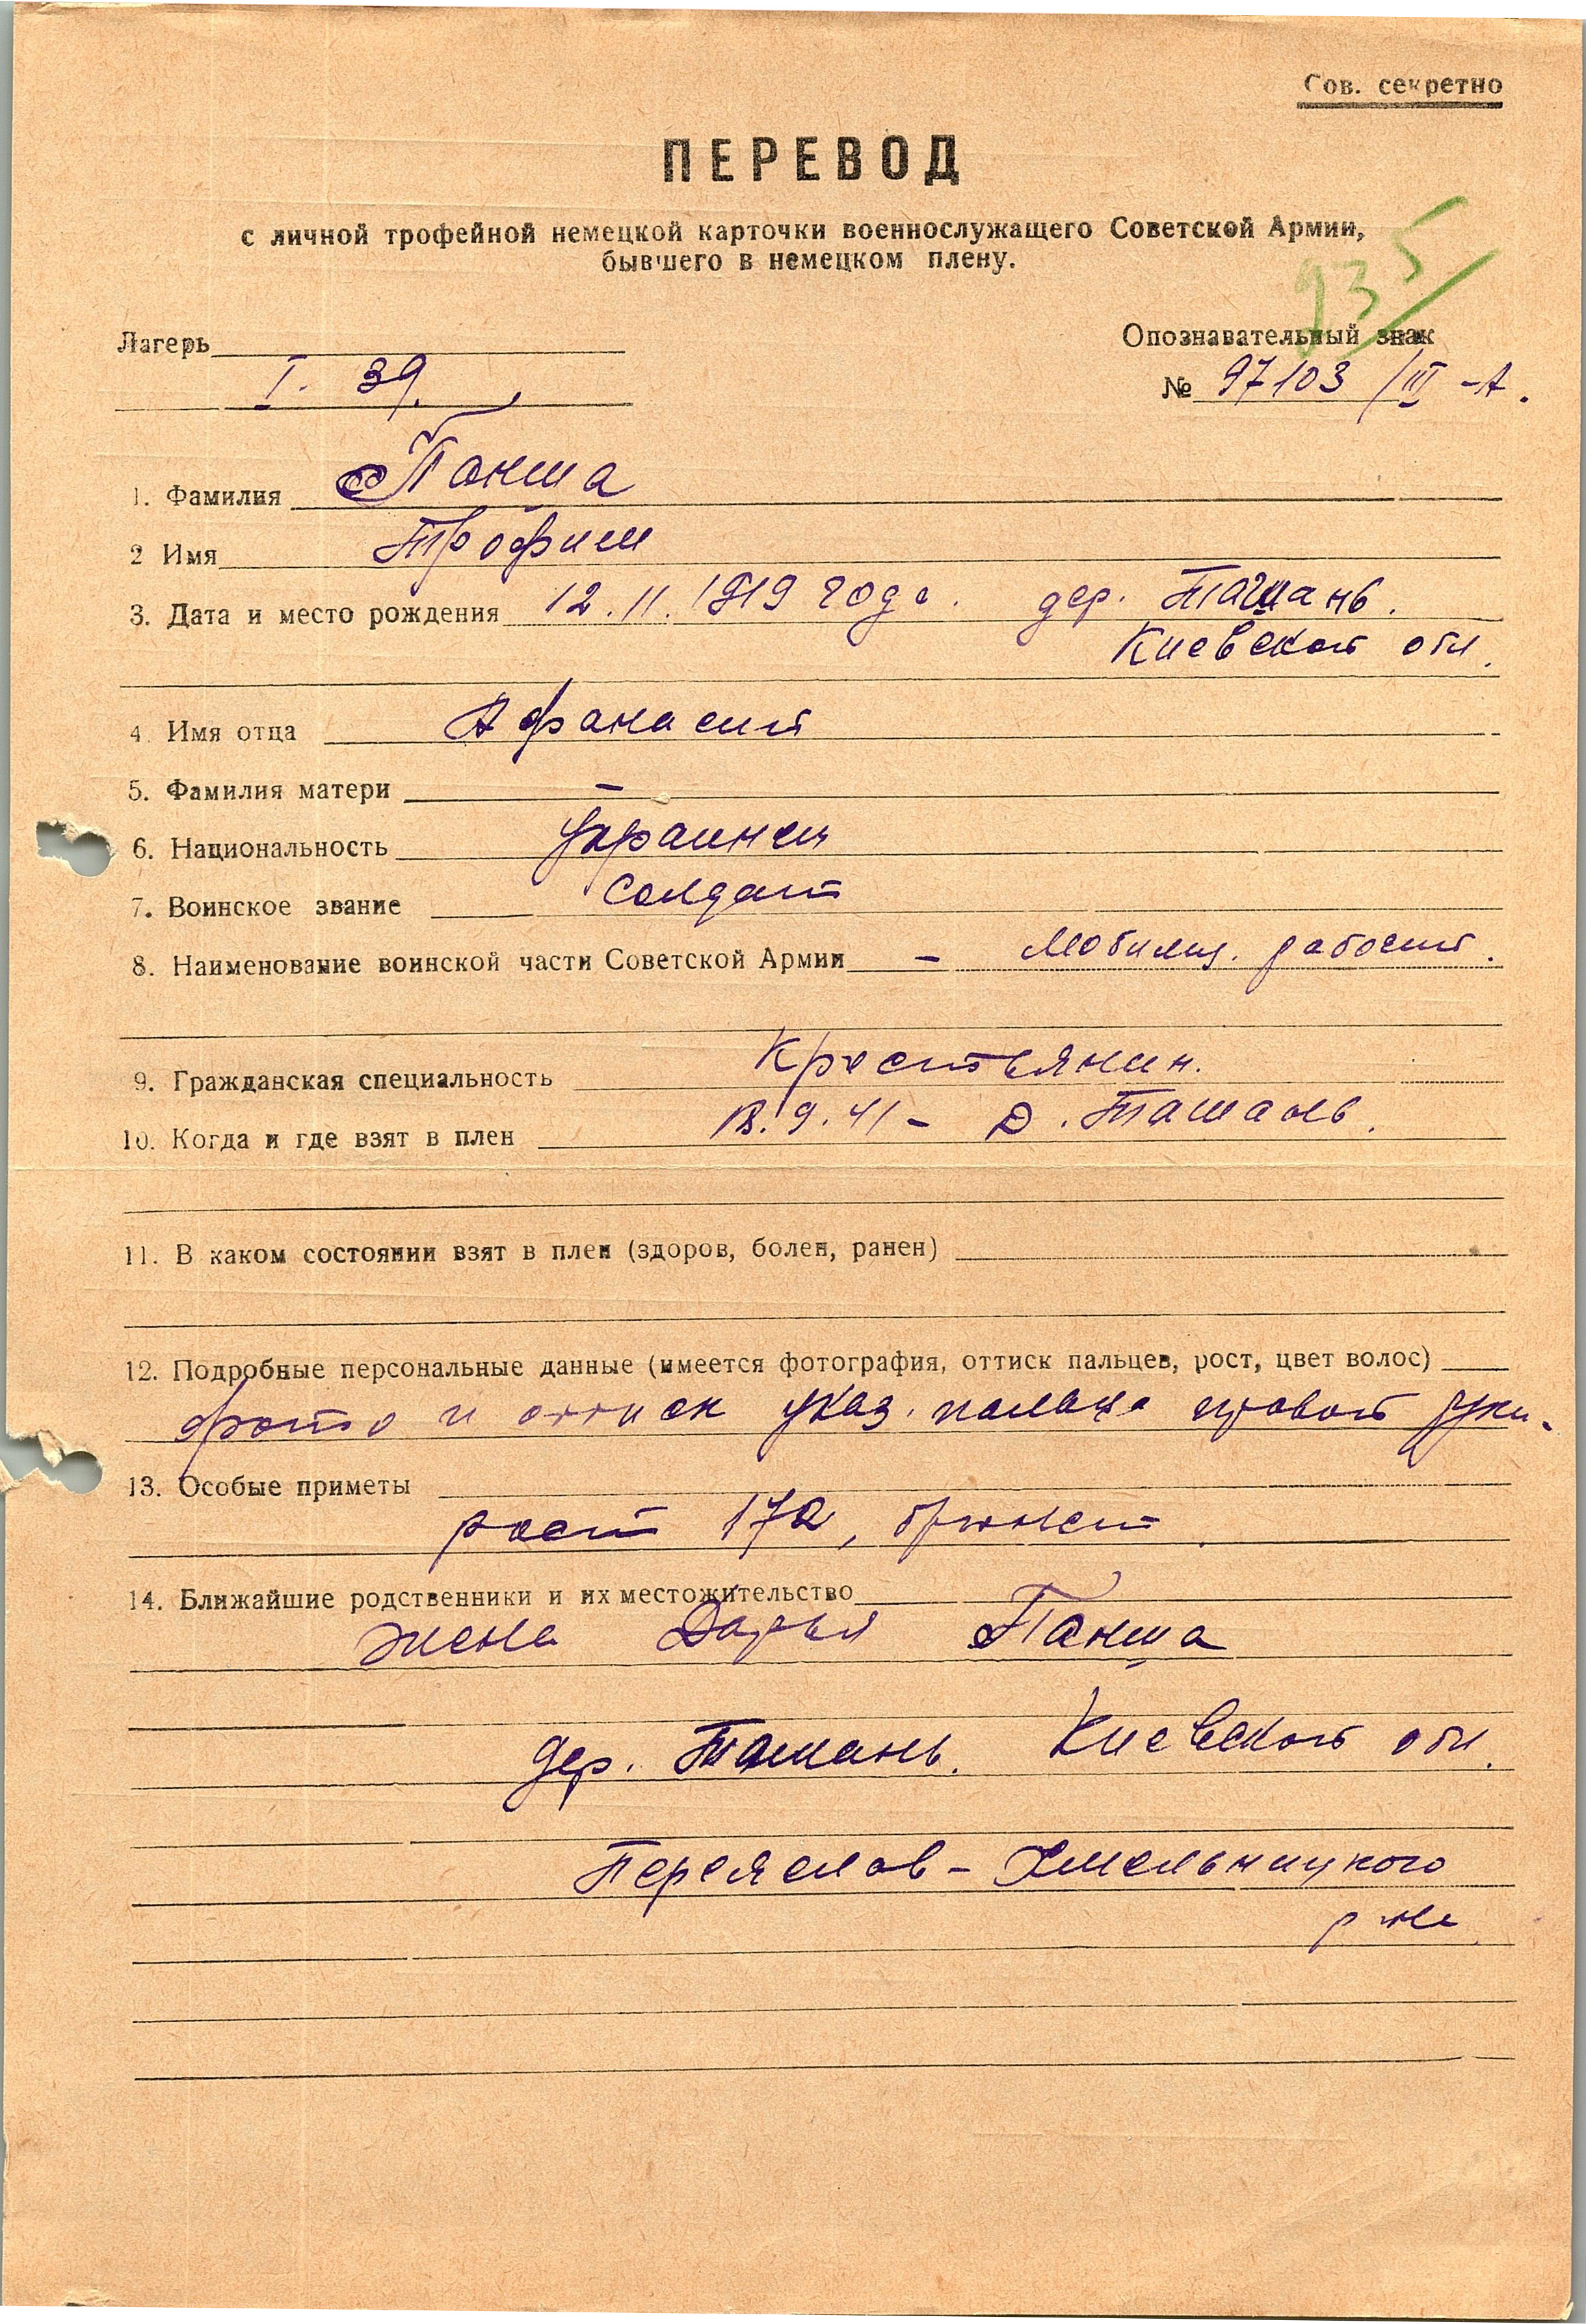 Сов. секретно
ПЕРЕВОД
с личной трофейной немецкой карточки военнослужащего Советской Армии,
бывшего в немецком плену.
935
Лагерь
Опознавательный знак
I. 39.
№ 97103 /III -А.
1. Фамилия Панша
2 Имя Трофим
3. Дата и место рождения 12.11.1919 года. дер. Ташань.
Киевской обл.
4. Имя отца Афанасий
5. Фамилия матери —
6. Национальность украинец
7. Воинское звание Солдат
8. Наименование воинской части Советской Армии — Мобилиз. рабочий.
9. Гражданская специальность Крестьянин.
10. Когда и где взят в плен 18.9.41 - д. Ташань.
11. В каком состоянии взят в плен (здоров, болен, ранен)
12. Подробные персональные данные (имеется фотография, оттиск пальцев, рост, цвет волос)
фото и оттиск указ. пальца правой руки.
13. Особые приметы
рост 172, брюнет.
14. Ближайшие родственники и их местожительство
жена Дарья Панша
дер. Ташань. Киевской обл.
Переяслав-Хмельницкого
р-на.